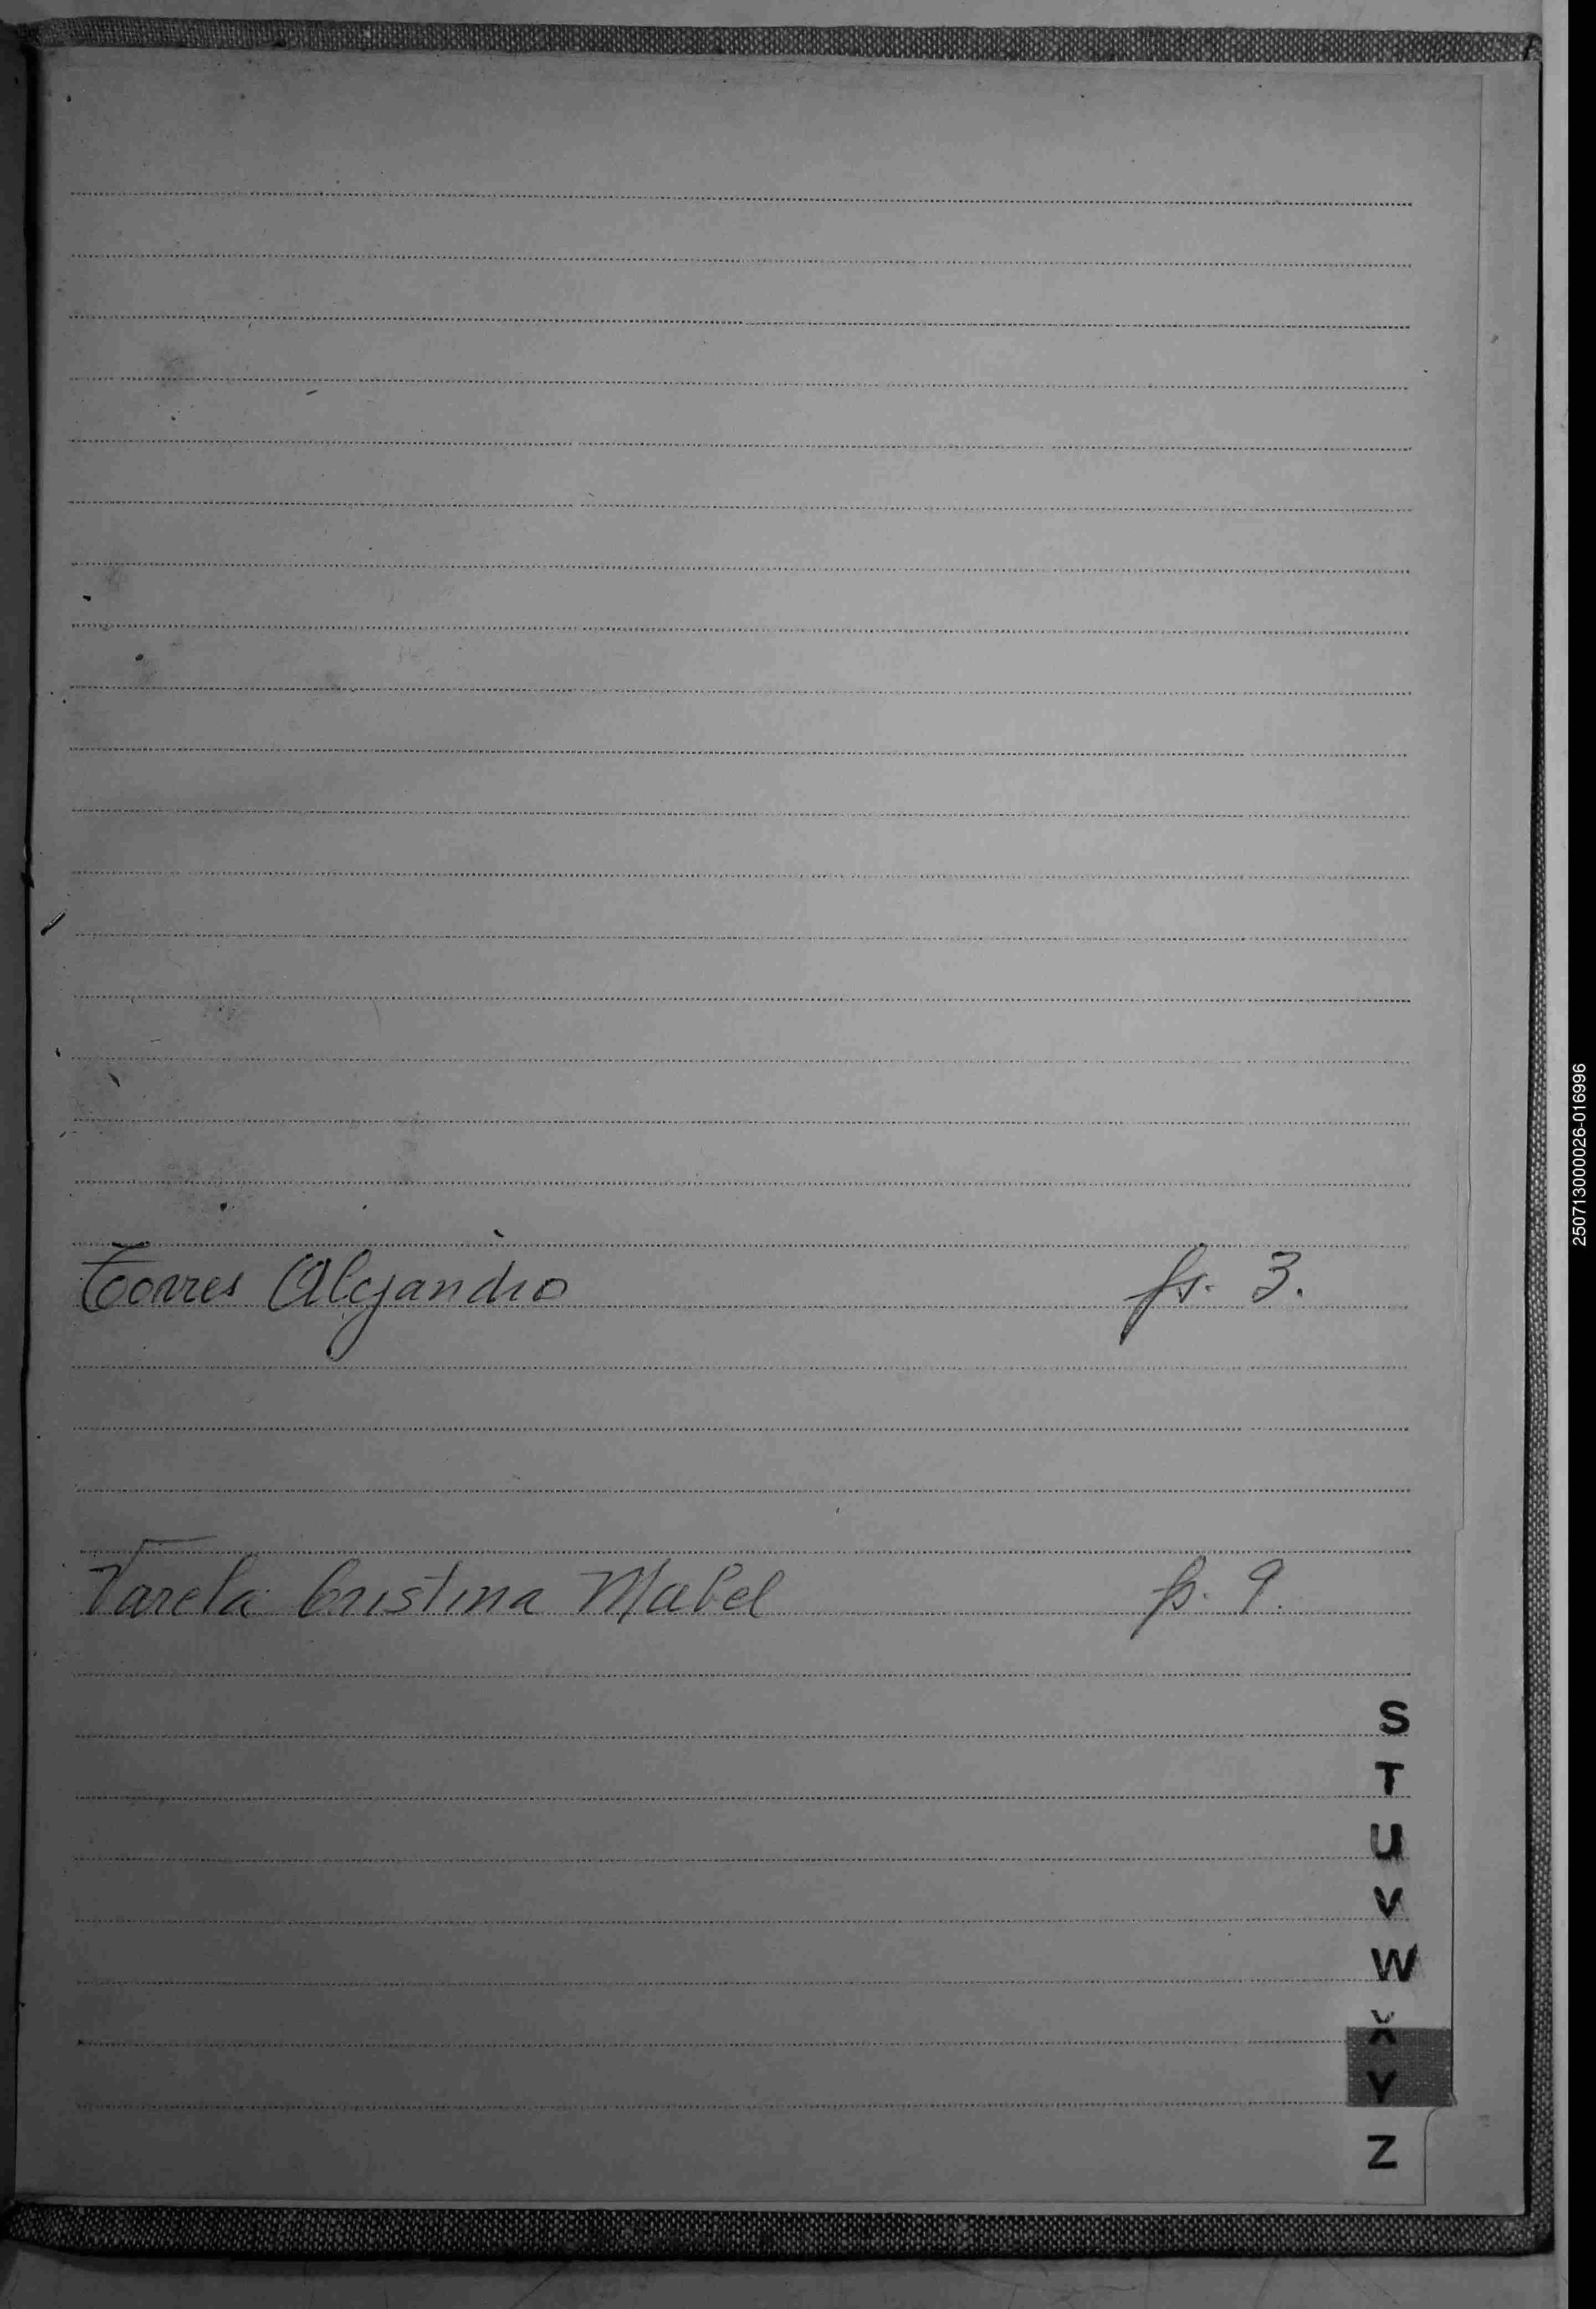 Torres Alejandro fs. 3.
Varela Cristina Mabel fs. 9.
S
T
U
V
W
X
Y
Z
250713000026-016996